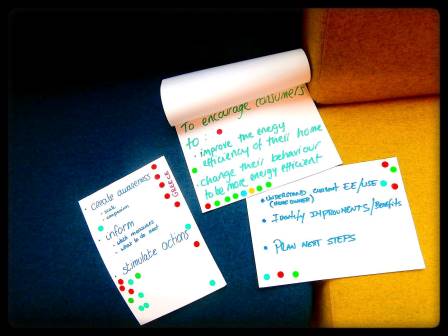 To encourage consumers
to:
• improve the energy
efficiency of their home
• change their behaviour
to be more energy efficient
• create awareness
• scale
• comparison
• inform
• which measures
• what to do next
• stimulate actions
GREECE
• UNDERSTAND CURRENT EE/USE
(HOMEOWNER)
• Identify IMPROVMENTS/Benefits
• PLAN NEXT STEPS